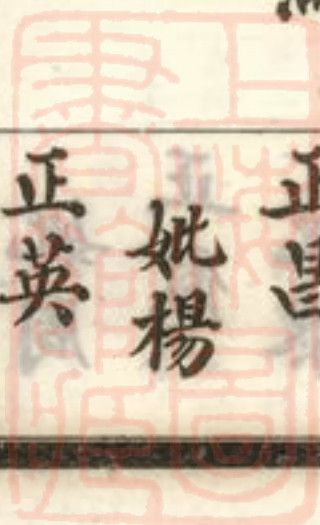 正昌
妣楊
正英